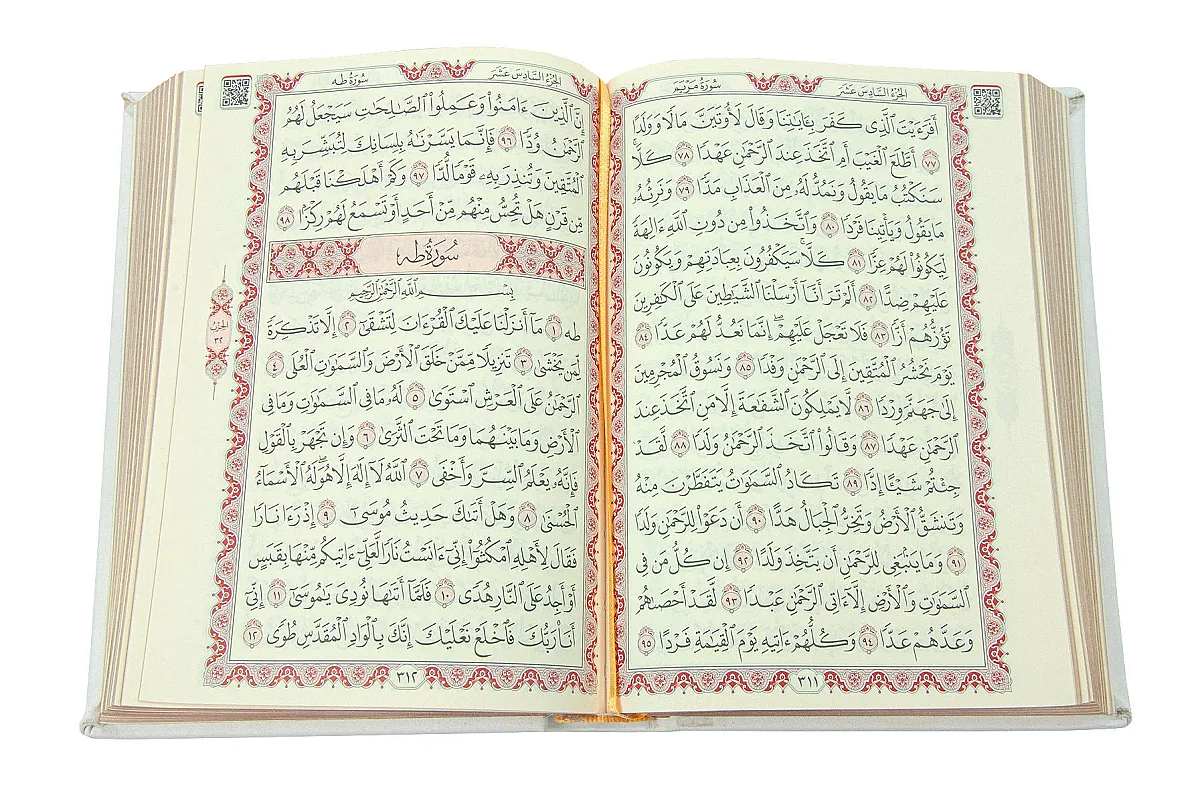 الجزء السادس عشر
سورة مريم
أَفَرَءَيْتَ ٱلَّذِى كَفَرَ بِـَٔايَـٰتِنَا وَقَالَ لَأُوتَيَنَّ مَالًا وَوَلَدًا
٧٧ أَطَّلَعَ ٱلْغَيْبَ أَمِ ٱتَّخَذَ عِندَ ٱلرَّحْمَـٰنِ عَهْدًا ٧٨ كَلَّا
سَنَكْتُبُ مَا يَقُولُ وَنَمُدُّ لَهُۥ مِنَ ٱلْعَذَابِ مَدًّا ٧٩ وَنَرِثُهُۥ
مَا يَقُولُ وَيَأْتِينَا فَرْدًا ٨٠ وَٱتَّخَذُوا۟ مِن دُونِ ٱللَّهِ ءَالِهَةً
لِّيَكُونُوا۟ لَهُمْ عِزًّا ٨١ كَلَّا سَيَكْفُرُونَ بِعِبَادَتِهِمْ وَيَكُونُونَ
عَلَيْهِمْ ضِدًّا ٨٢ أَلَمْ تَرَ أَنَّآ أَرْسَلْنَا ٱلشَّيَـٰطِينَ عَلَى ٱلْكَـٰفِرِينَ
تَؤُزُّهُمْ أَزًّا ٨٣ فَلَا تَعْجَلْ عَلَيْهِمْ إِنَّمَا نَعُدُّ لَهُمْ عَدًّا ٨٤
يَوْمَ نَحْشُرُ ٱلْمُتَّقِينَ إِلَى ٱلرَّحْمَـٰنِ وَفْدًا ٨٥ وَنَسُوقُ ٱلْمُجْرِمِينَ
إِلَىٰ جَهَنَّمَ وِرْدًا ٨٦ لَّا يَمْلِكُونَ ٱلشَّفَـٰعَةَ إِلَّا مَنِ ٱتَّخَذَ عِندَ
ٱلرَّحْمَـٰنِ عَهْدًا ٨٧ وَقَالُوا۟ ٱتَّخَذَ ٱلرَّحْمَـٰنُ وَلَدًا ٨٨ لَّقَدْ
جِئْتُمْ شَيْـًٔا إِدًّا ٨٩ تَكَادُ ٱلسَّمَـٰوَٰتُ يَتَفَطَّرْنَ مِنْهُ
وَتَنشَقُّ ٱلْأَرْضُ وَتَخِرُّ ٱلْجِبَالُ هَدًّا ٩٠ أَن دَعَوْا۟ لِلرَّحْمَـٰنِ وَلَدًا
٩١ وَمَا يَنۢبَغِى لِلرَّحْمَـٰنِ أَن يَتَّخِذَ وَلَدًا ٩٢ إِن كُلُّ مَن فِى
ٱلسَّمَـٰوَٰتِ وَٱلْأَرْضِ إِلَّآ ءَاتِى ٱلرَّحْمَـٰنِ عَبْدًا ٩٣ لَّقَدْ أَحْصَىٰهُمْ
وَعَدَّهُمْ عَدًّا ٩٤ وَكُلُّهُمْ ءَاتِيهِ يَوْمَ ٱلْقِيَـٰمَةِ فَرْدًا ٩٥
٣١١
الجزء السادس عشر
سورة طه
إِنَّ ٱلَّذِينَ ءَامَنُوا۟ وَعَمِلُوا۟ ٱلصَّـٰلِحَـٰتِ سَيَجْعَلُ لَهُمُ
ٱلرَّحْمَـٰنُ وُدًّا ٩٦ فَإِنَّمَا يَسَّرْنَـٰهُ بِلِسَانِكَ لِتُبَشِّرَ بِهِ
ٱلْمُتَّقِينَ وَتُنذِرَ بِهِۦ قَوْمًا لُّدًّا ٩٧ وَكَمْ أَهْلَكْنَا قَبْلَهُم
مِّن قَرْنٍ هَلْ تُحِسُّ مِنْهُم مِّنْ أَحَدٍ أَوْ تَسْمَعُ لَهُمْ رِكْزًۢا ٩٨
سُورَةُ طه
بِسْمِ ٱللَّهِ ٱلرَّحْمَـٰنِ ٱلرَّحِيمِ
طه ١ مَآ أَنزَلْنَا عَلَيْكَ ٱلْقُرْءَانَ لِتَشْقَىٰٓ ٢ إِلَّا تَذْكِرَةً
لِّمَن يَخْشَىٰ ٣ تَنزِيلًا مِّمَّنْ خَلَقَ ٱلْأَرْضَ وَٱلسَّمَـٰوَٰتِ ٱلْعُلَى ٤
ٱلرَّحْمَـٰنُ عَلَى ٱلْعَرْشِ ٱسْتَوَىٰ ٥ لَهُۥ مَا فِى ٱلسَّمَـٰوَٰتِ وَمَا فِى
ٱلْأَرْضِ وَمَا بَيْنَهُمَا وَمَا تَحْتَ ٱلثَّرَىٰ ٦ وَإِن تَجْهَرْ بِٱلْقَوْلِ
فَإِنَّهُۥ يَعْلَمُ ٱلسِّرَّ وَأَخْفَى ٧ ٱللَّهُ لَآ إِلَـٰهَ إِلَّا هُوَ لَهُ ٱلْأَسْمَآءُ
ٱلْحُسْنَىٰ ٨ وَهَلْ أَتَىٰكَ حَدِيثُ مُوسَىٰٓ ٩ إِذْ رَءَا نَارًا
فَقَالَ لِأَهْلِهِ ٱمْكُثُوٓا۟ إِنِّىٓ ءَانَسْتُ نَارًا لَّعَلِّىٓ ءَاتِيكُم مِّنْهَا بِقَبَسٍ
أَوْ أَجِدُ عَلَى ٱلنَّارِ هُدًى ١٠ فَلَمَّآ أَتَىٰهَا نُودِىَ يَـٰمُوسَىٰٓ ١١ إِنِّىٓ
أَنَا۠ رَبُّكَ فَٱخْلَعْ نَعْلَيْكَ إِنَّكَ بِٱلْوَادِ ٱلْمُقَدَّسِ طُوًى ١٢
الحزب
٣٢
٣١٢